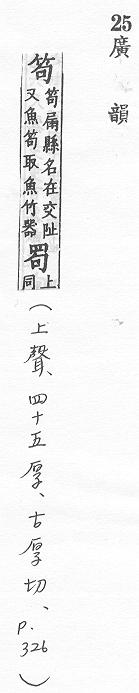 25廣韻
笱 笱屚縣名在交阯
又魚笱取魚竹器 𦊒 上同
(上聲、四十五厚、古厚切、p. 326)